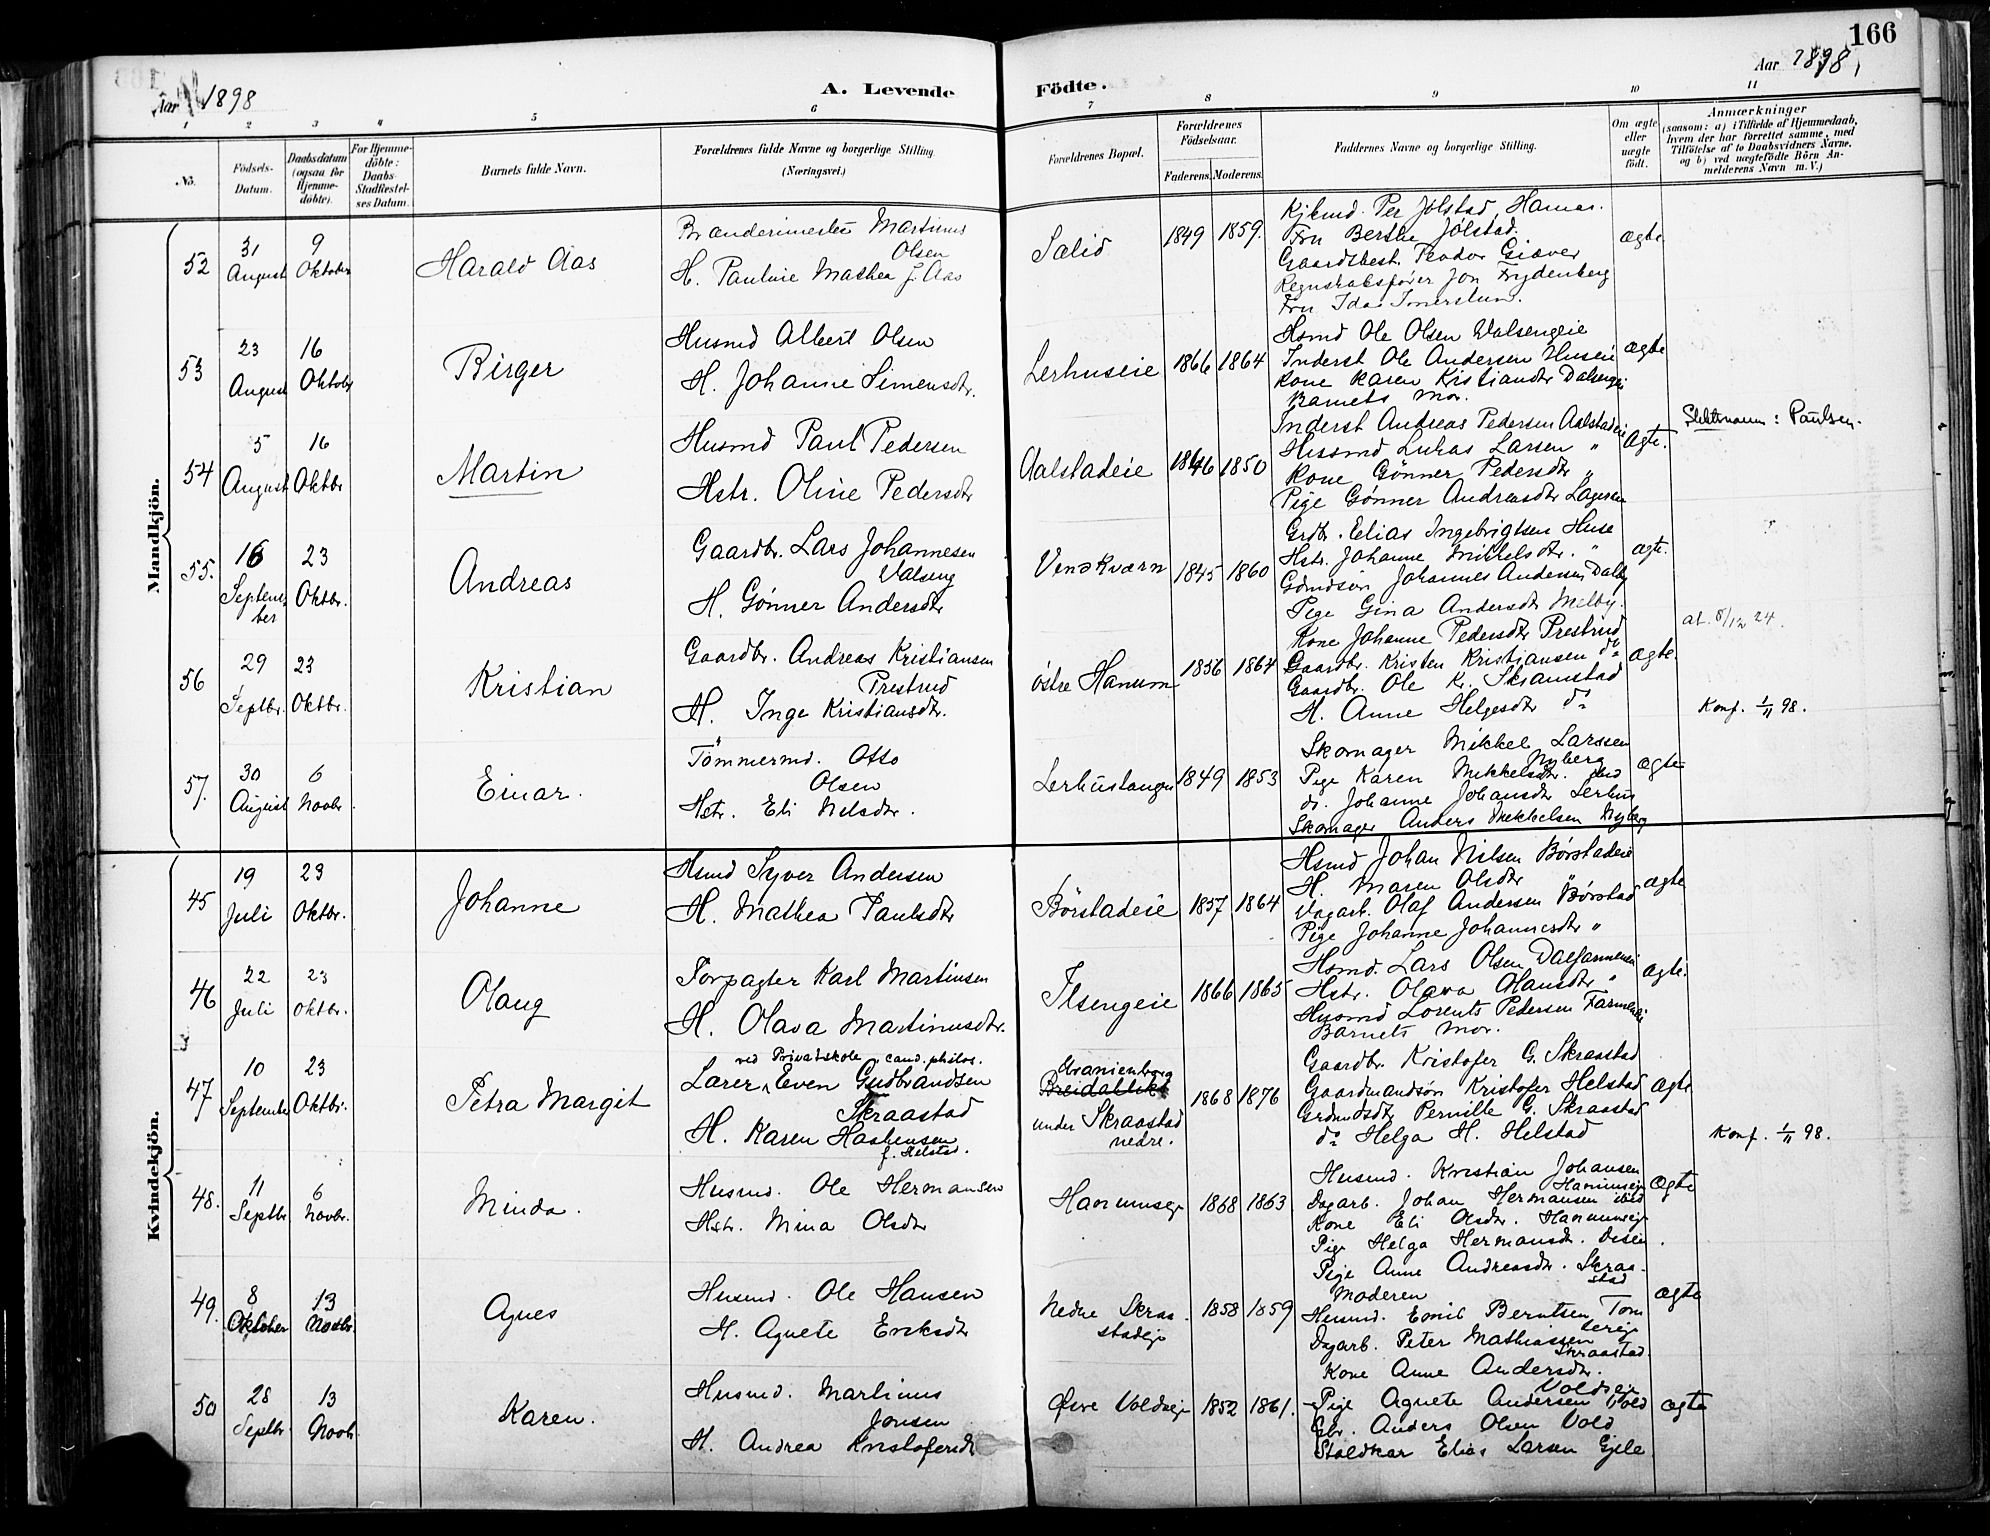 166
Aar 1898
A. Levende
Födte.
Aar 1898,
1 2 3 4 5 6 7 8 9 10 11
No.
Födsels-Datum.
Daabsdatum (ogsaa for Hjemme-döbte).
For Hjemme-döbte: Daabs-Stadfæstel-ses Datum.
Barnets fulde Navn.
Forældrenes fulde Navne og borgerlige Stilling. (Næringsvei.)
Forældrenes Bopæl.
Forældrenes Födselsaar.
Faderens. Moderens.
Faddernes Navne og borgerlige Stilling.
Om ægte eller uægte födt.
Anmærkninger
(saasom: a) i Tilfælde af Hjemmedaab, hvem der har forrettet samme, med Tilföielse af to Daabsvidners Navne, og b) ved uægtefödte Börn An-melderens Navn m. V.)
Mandkjön.
52
31 August
9 Oktober
Harald Aas
Brænderimester Martinus
Olsen
H. Pauline Mathea f. Aas
Sælid
1849 1859.
Kjbmd. Per Jølstad, Hamar.
Fru Berthe Jølstad.
Gaardsbest. Teodor Giæver
Regnskabsfører Jon Frydenberg
Fru Ida
ægte
53
23 August
16 Oktober
Birger
Husmd Albert Olsen
H. Johanne Simensdtr.
Lerhuseie
1866 1864
Hsmd Ole Olsen Valsengeie
Inderst Ole Andersen Huseie
Kone Karen Kristiansdtr Dalsengei
Barnets Mor.
ægte
54
5 August
16 Oktbr
Martin
Husmd Paul Pedersen
Hstr. Oline Pedersdtr
Aalstadeie
1846 1850
Inderst Andreas Pedersen Aalstadeie
Husmd Lukas Larsen "
Kone Gønner Pedersdtr "
Pige Gønner Andreasdtr
Ægte.
Slektsnavn: Paulsen.
55.
16 September
23 Oktbr.
Andreas
Gaardbr. Lars Johannesen
Valseng
H. Gønner Andersdtr
Venskværn
1845 1860
Grdbr. Elias Ingebrigtsen Huse
Hstr. Johanne Mikkelsdtr. "
Gdmdsøn Johannes Andersen Dalby
Pige Gina Andersdtr Melby.
ægte.
at. 8/12 24.
56
29 Septbr.
23 Oktbr.
Kristian
Gaardbr. Andreas Kristiansen
Prestrud
H. Inge Kristiansdtr.
østre Hanum
1856 1864
Kone Johanne Pedersdtr Prestrud
Gaardbr. Kristen Kristiansen do
Gaardbr. Ole Kr. Skramstad
H. Anne Helgesdtr do
Ægte.
Konf. 1/11 98.
57.
30 August
6 Novbr.
Einar.
Tømmermd. Otto
Olsen
Hstr. Eli Nilsdtr.
Lerhustangen
1849 1853
Skomager Mikkel Larssen
Nyberg
Pige Karen Mikkelsdtr. ibid
do. Johanne Johansdtr Lerhus
Skomager Anders Mikkelsen Nyberg
ægte
Kvindekjön.
45
19 Juli
23 Oktbr.
Johanne
Hsmd Syver Andersen
H. Mathea Paulsdtr
Børstadeie
1857 1864
Hsmd Johan Nilsen Børstadeie
H. Maren Olsdtr "
Ungarb. Olaf Andersen Børstad
Pige Johanne Johannesdtr "
ægte
46
22 Juli
23 Oktbr.
Olaug
Forpagter Karl Martinsen
H. Olava Martinusdtr.
Ilsengeie
1866 1865
Hsmd. Lars Olsen Dalfarmeneie
Hstr. Olava Olausdtr "
Husmd Lorents Pedersen Farmenei
Barnets Mor.
ægte.
47
10 September
23 Oktbr.
Petra Margit
ved Privatskole, cand. philos.
Lærer Even Gudbrandsen
Skraastad
H. Karen Haakensen
f. Helstad.
Uranienborg
Breidablik
under Skraastad
nedre.
1868 1876
Gaardbr. Kristofer G. Skraastad
Gaardmandsøn Kristofer Helstad
Grdmdsdtr Pernille G. Skraastad
do Helga H. Helstad
Ægte
Konf. 1/11 98.
48.
11 Septbr.
6 Novbr.
Minda.
Husmd. Ole Hermansen
Hstr. Mina Olsdtr
Hanumseje
1868 1863
Husmd. Kristian Johansen
Hanumseje
Dagarb. Johan Hermansen ibid
Kone Eli Olsdtr. Hanumseje
Pige Helga Hermansdr. Disen.
Ægte
49.
8 Oktober
13 Novbr.
Agnes
Husmd. Ole Hansen
H. Agnete Eriksdtr
Nedre Skraa-
stadeje
1858 1859
Pige Anne Andreasdr. Skraa-
stad
Moderen
Husmd. Emil Berntsen Tom
tereje
Dagarb. Peter Mathiassen
Skraastad.
ægte
50
28 Septbr
13 Novbr
Karen.
Husmd. Martinus
Jonsen
H. Andrea Kristofersdtr
Øvre Voldseje
1852 1861.
Kone Anne Andersdtr.
Voldseje
Pige Agnete Andersen Vold
Gbr. Anders Olsen Vold
Staldkar Elias Larsen Gjele
ægte